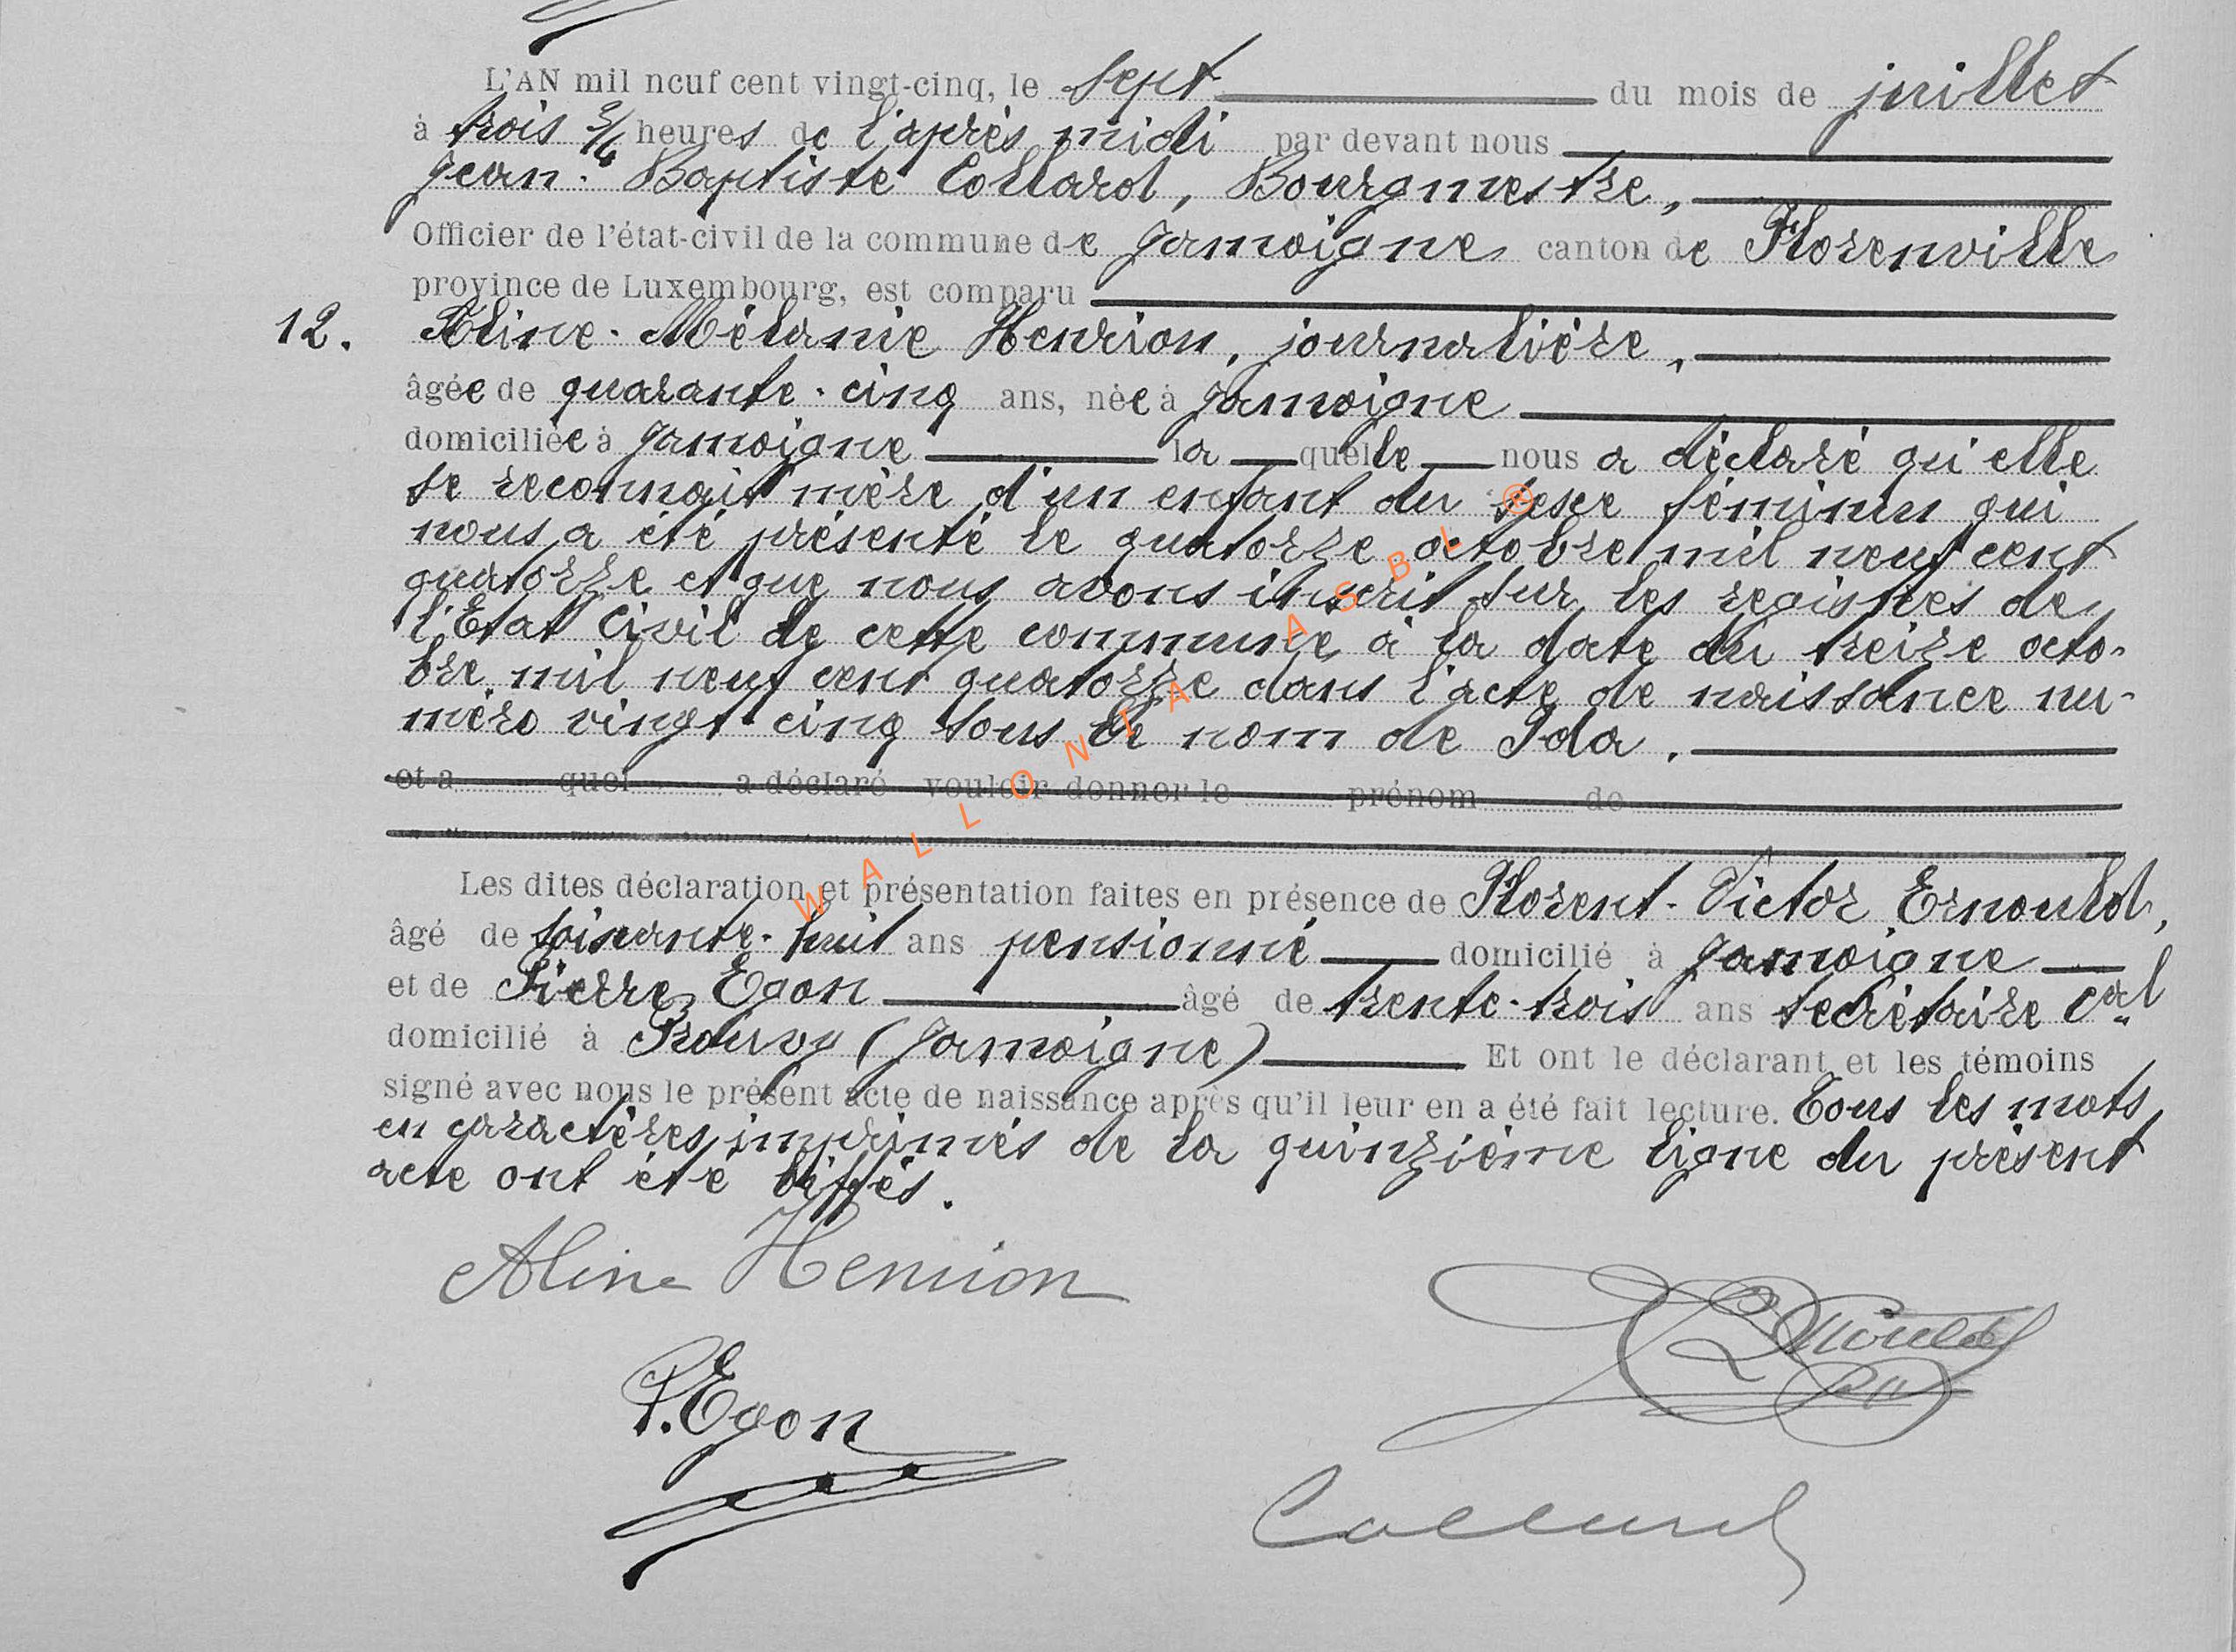 L'AN mil neuf cent vingt-cinq, le sept du mois de juillet
à trois 3/4 heures de l'après midi par devant nous
Jean-Baptiste Collard, Bourgmestre,
Officier de l'état-civil de la commune de Jamoigne canton de Florenville
province de Luxembourg, est comparu
12. Aline-Mélanie Henrion, journalière,
âgée de quarante-cinq ans, née à Jamoigne
domiciliée à Jamoigne la quelle nous a déclaré qu'elle
se reconnait mère d'un enfant du sexe féminin qui
nous a été présenté le quatorze octobre mil neuf cent
quatorze et que nous avons inscrit sur les registres de
l'Etat Civil de cette commune à la date du treize octo-
bre mil neuf cent quatorze dans l'acte de naissance nu-
méro vingt-cinq sous le nom de Ida.
et a quel a déclaré vouloir donner le prénom de
Les dites déclaration et présentation faites en présence de Florent-Victor Ernould,
âgé de soixante-huit ans pensionné domicilié à Jamoigne
et de Pierre Egon âgé de trente-trois ans secrétaire cal
domicilié à Prouvy (Jamoigne) Et ont le déclarant et les témoins
signé avec nous le présent acte de naissance après qu'il leur en a été fait lecture. Tous les mots
en caractères imprimés de la quinzième ligne du présent
acte ont été biffés.
Aline Henrion
Ernould
P. Egon
Collard
WALLONIA ASBL ®